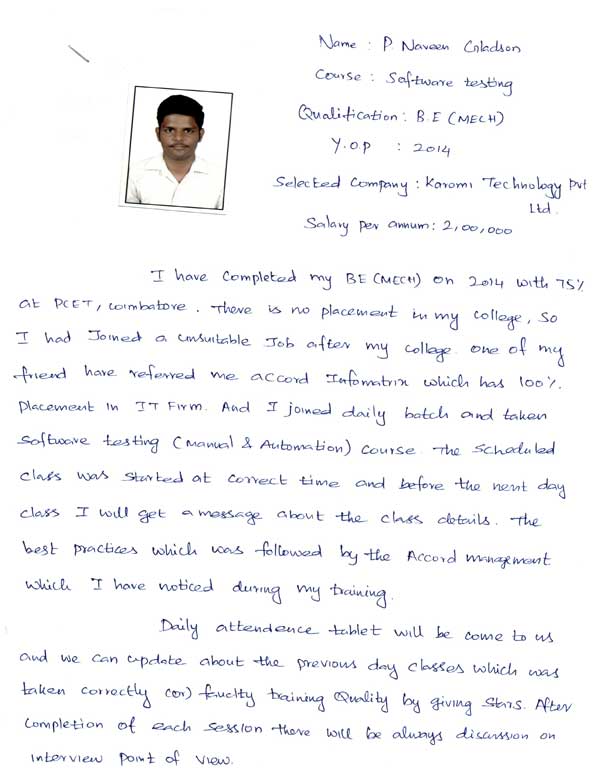 Name : P. Naveen Gnladson
Course : Software testing
Qualification : B.E (MECH)
Y.O.P : 2014
Selected Company : Karomi Technology Pvt
Ltd.
Salary per annum : 2,00,000
I have completed my BE (MECH) on 2014 with 75%
at PCET, coimbatore. There is no placement in my college, So
I had Joined a unsuitable Job after my college. one of my
friend have referred me accord Infomatrix which has 100%.
Placement in IT Firm. And I joined daily batch and taken
Software testing (Manual & Automation) course. The Scheduled
class was started at correct time and before the next day
class I will get a message about the class details. The
best practices which was followed by the Accord management
which I have noticed during my training.
Daily attendence tablet will be come to us
and we can update about the previous day classes which was
taken correctly (or) fauclty training Quality by giving Stars. After
completion of each session there will be always discussion on
interview point of view.